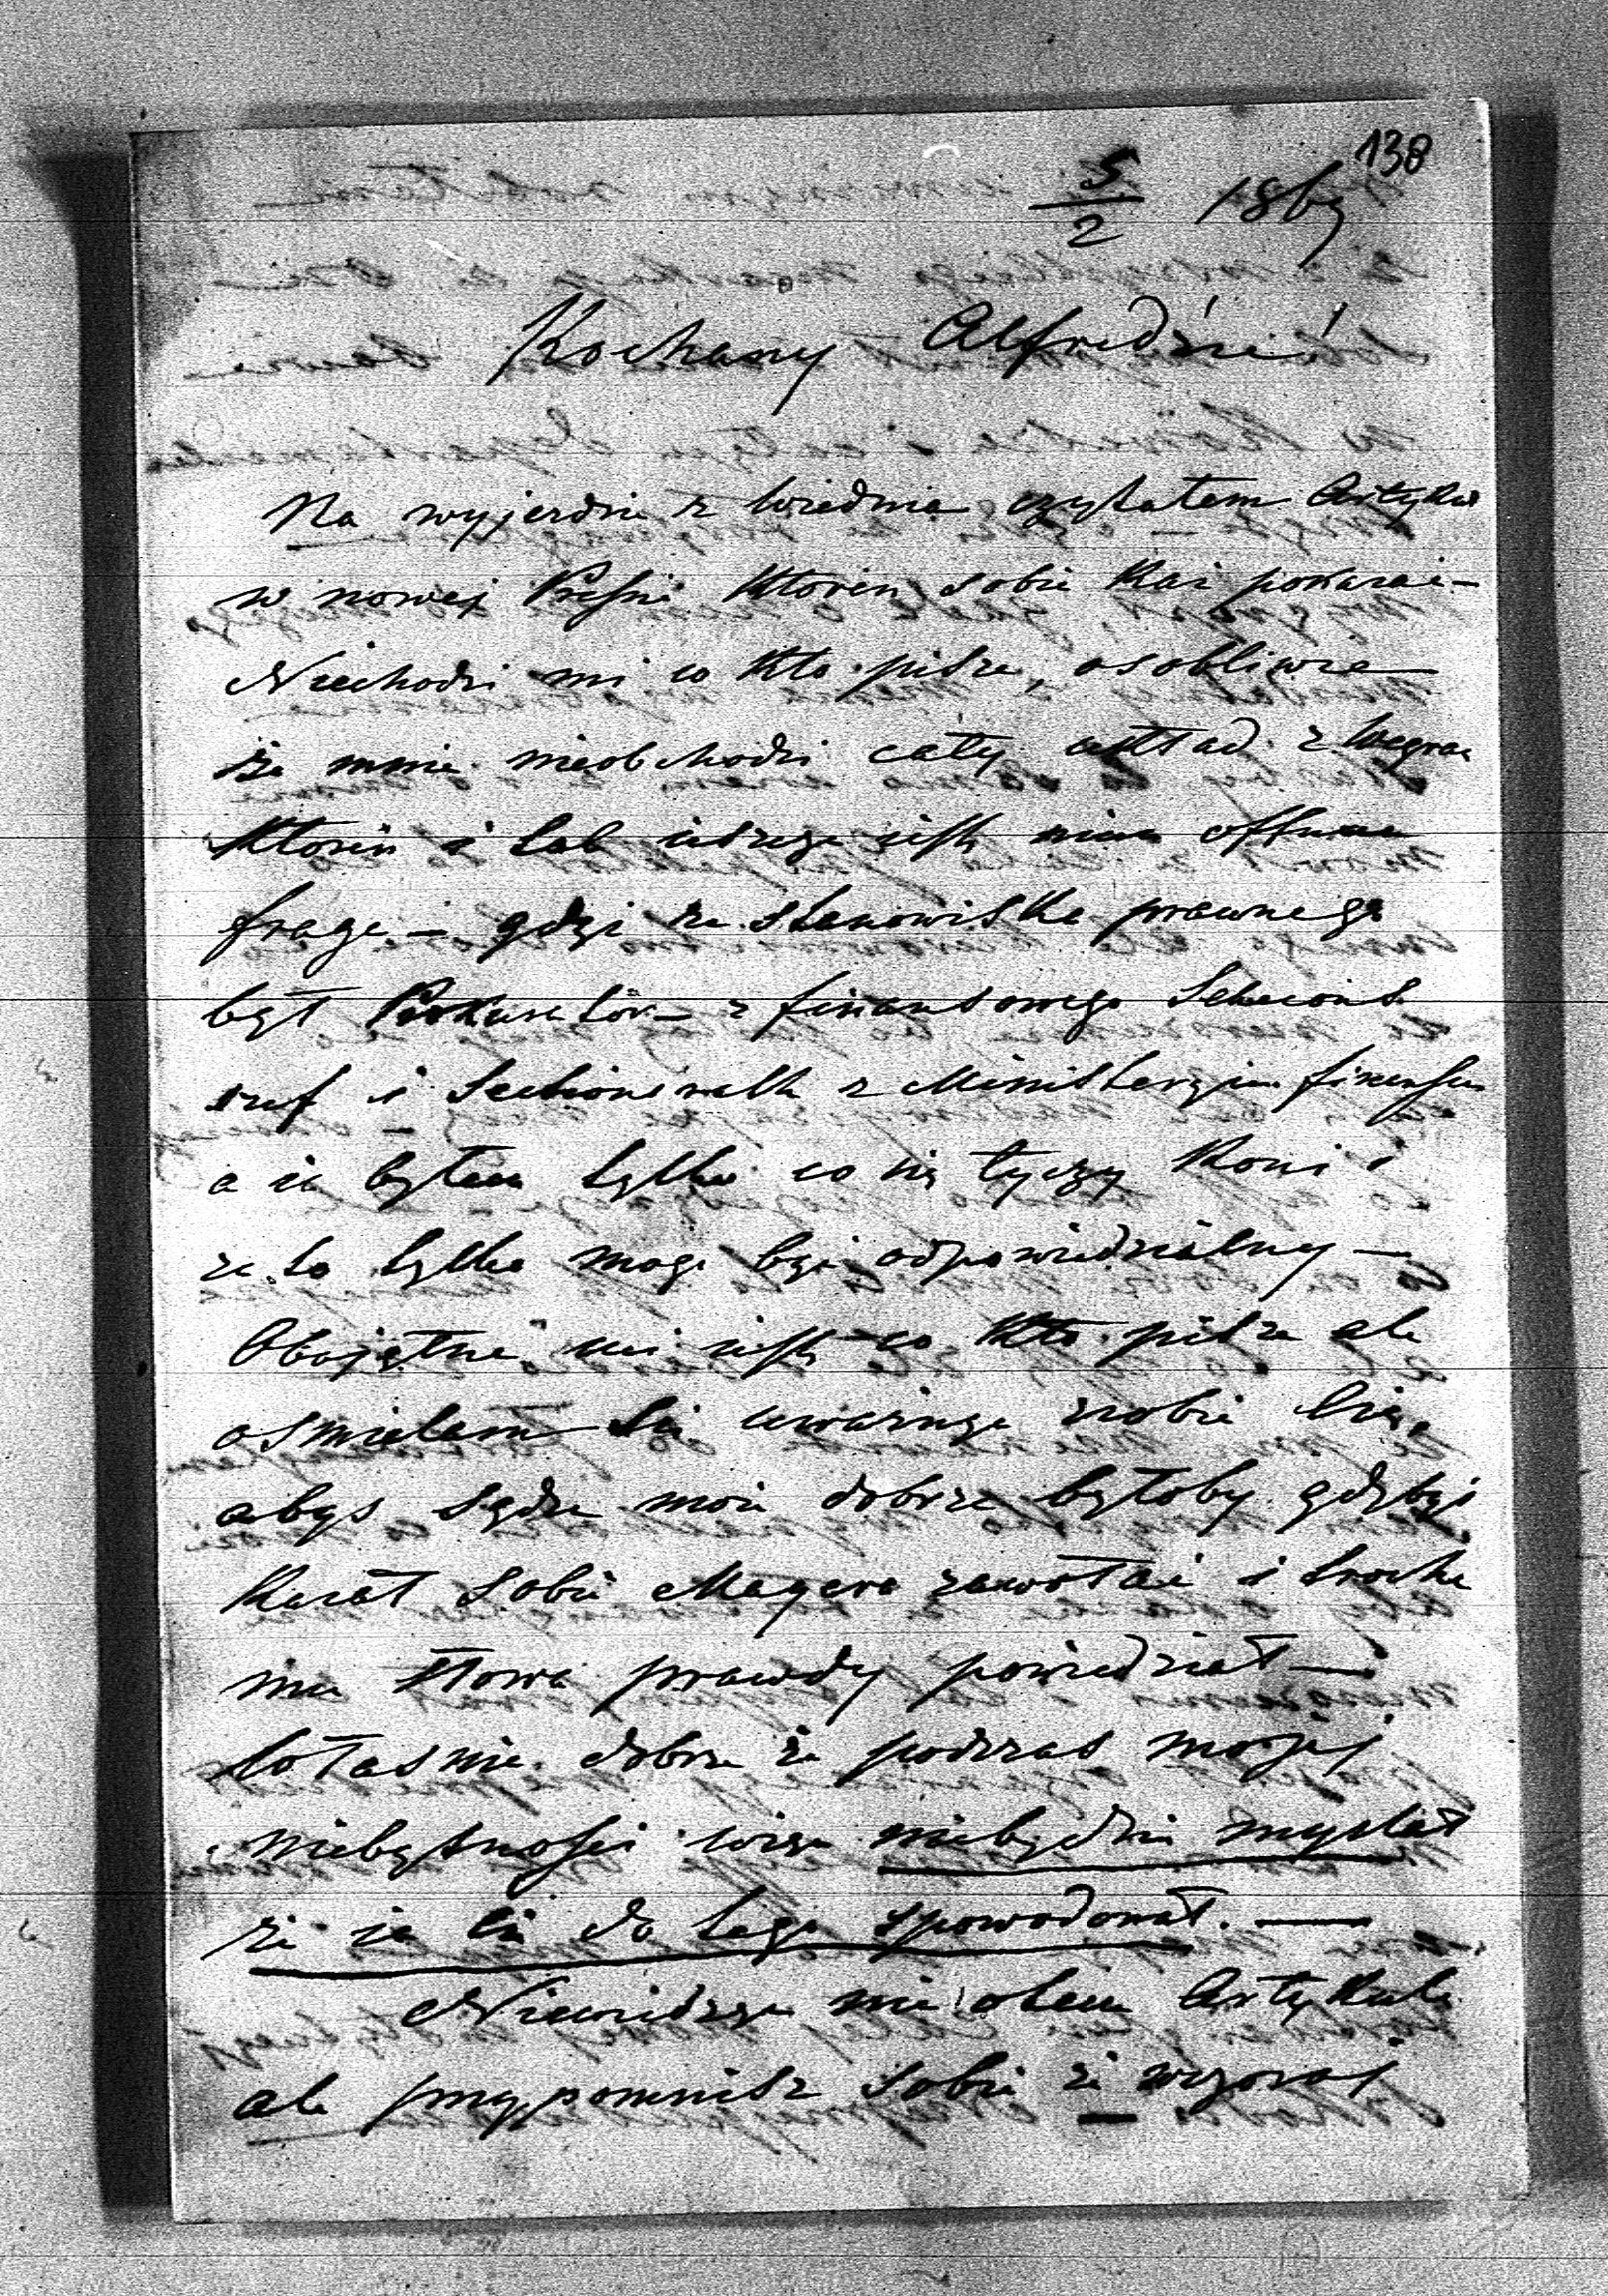 138
5/2 1869
Kochany Alfredzie!
Na wyjezdnie z Wiednia czytałem Artykuł
w nowej Presie ktoren sobie każ pokazać —
Niechodzi mi co kto pisze, osobliwie
że mnie nieobchodzi cały układ z Węgrami
ktoren i tak jeszcze jest offene
frage — gdzie ze stanowiska prawnego
był Prokurator — z finansowego Sekcions
szef i Sectionsrath z Ministerjum finansów
a ja byłem tylko co się tyczy koni i
za to tylko mogę być odpowiedzialny —
Obojętne mi jest co kto pisze ale
ośmielam się uwaznym zrobić Cię,
abys sądzę może dobrze byłoby gdybyś
kazał sobie Magera zawołać i trochę
mu słowa prawdy powiedział —
to łasnie dobrze że podczas mojej
niebytności więc niebędzie myslał
że ja Cię do tego spowodował. —
Niewidzę się o tem Artykule
ale przypomnisz sobie że wczoraj